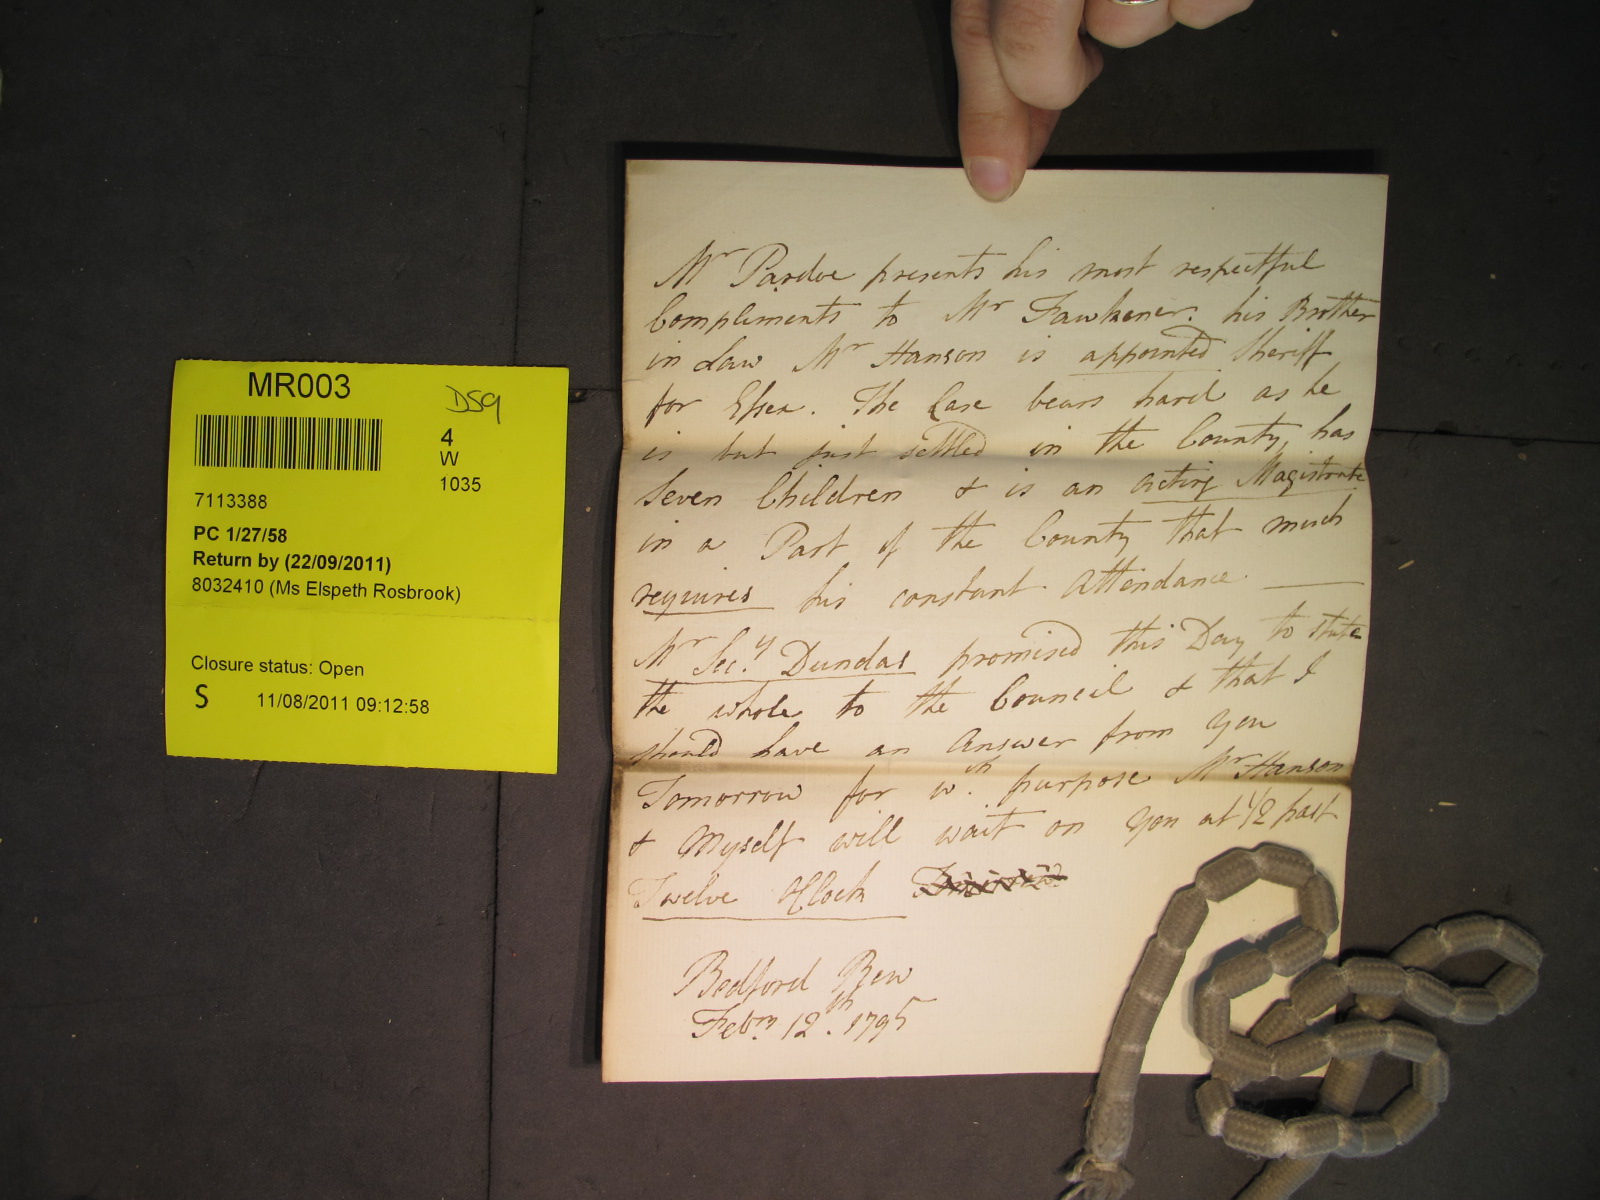 MR003
DS9
4
W
1035
7113388
PC 1/27/58
Return by (22/09/2011)
8032410 (Ms Elspeth Rosbrook)
Closure status: Open
S 11/08/2011 09:12:58
Mr Pardoe presents his most respectful
Compliments to Mr Fawkener. his Brother
in Law Mr Hanson is appointed Sheriff
for Essex. The Case bears hard as he
is but just settled in the County, has
Seven Children & is an acting Magistrate
in a Part of the County that much
requires his constant Attendance.
Mr Secy Dundas promised this Day to state
the whole to the Council & that I
should have an Answer from You
Tomorrow for wh. purpose Mr Hanson
& Myself will wait on You at 1/2 past
Twelve OClock
Bedford Row
Febry 12th. 1795